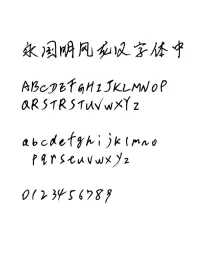 永国明风龙汉字体中
ABCDEFGHIJKLMNOP
QRSTRSTUVWXYZ
abcdefghijklmno
pqrstuvwxyz
0123456789